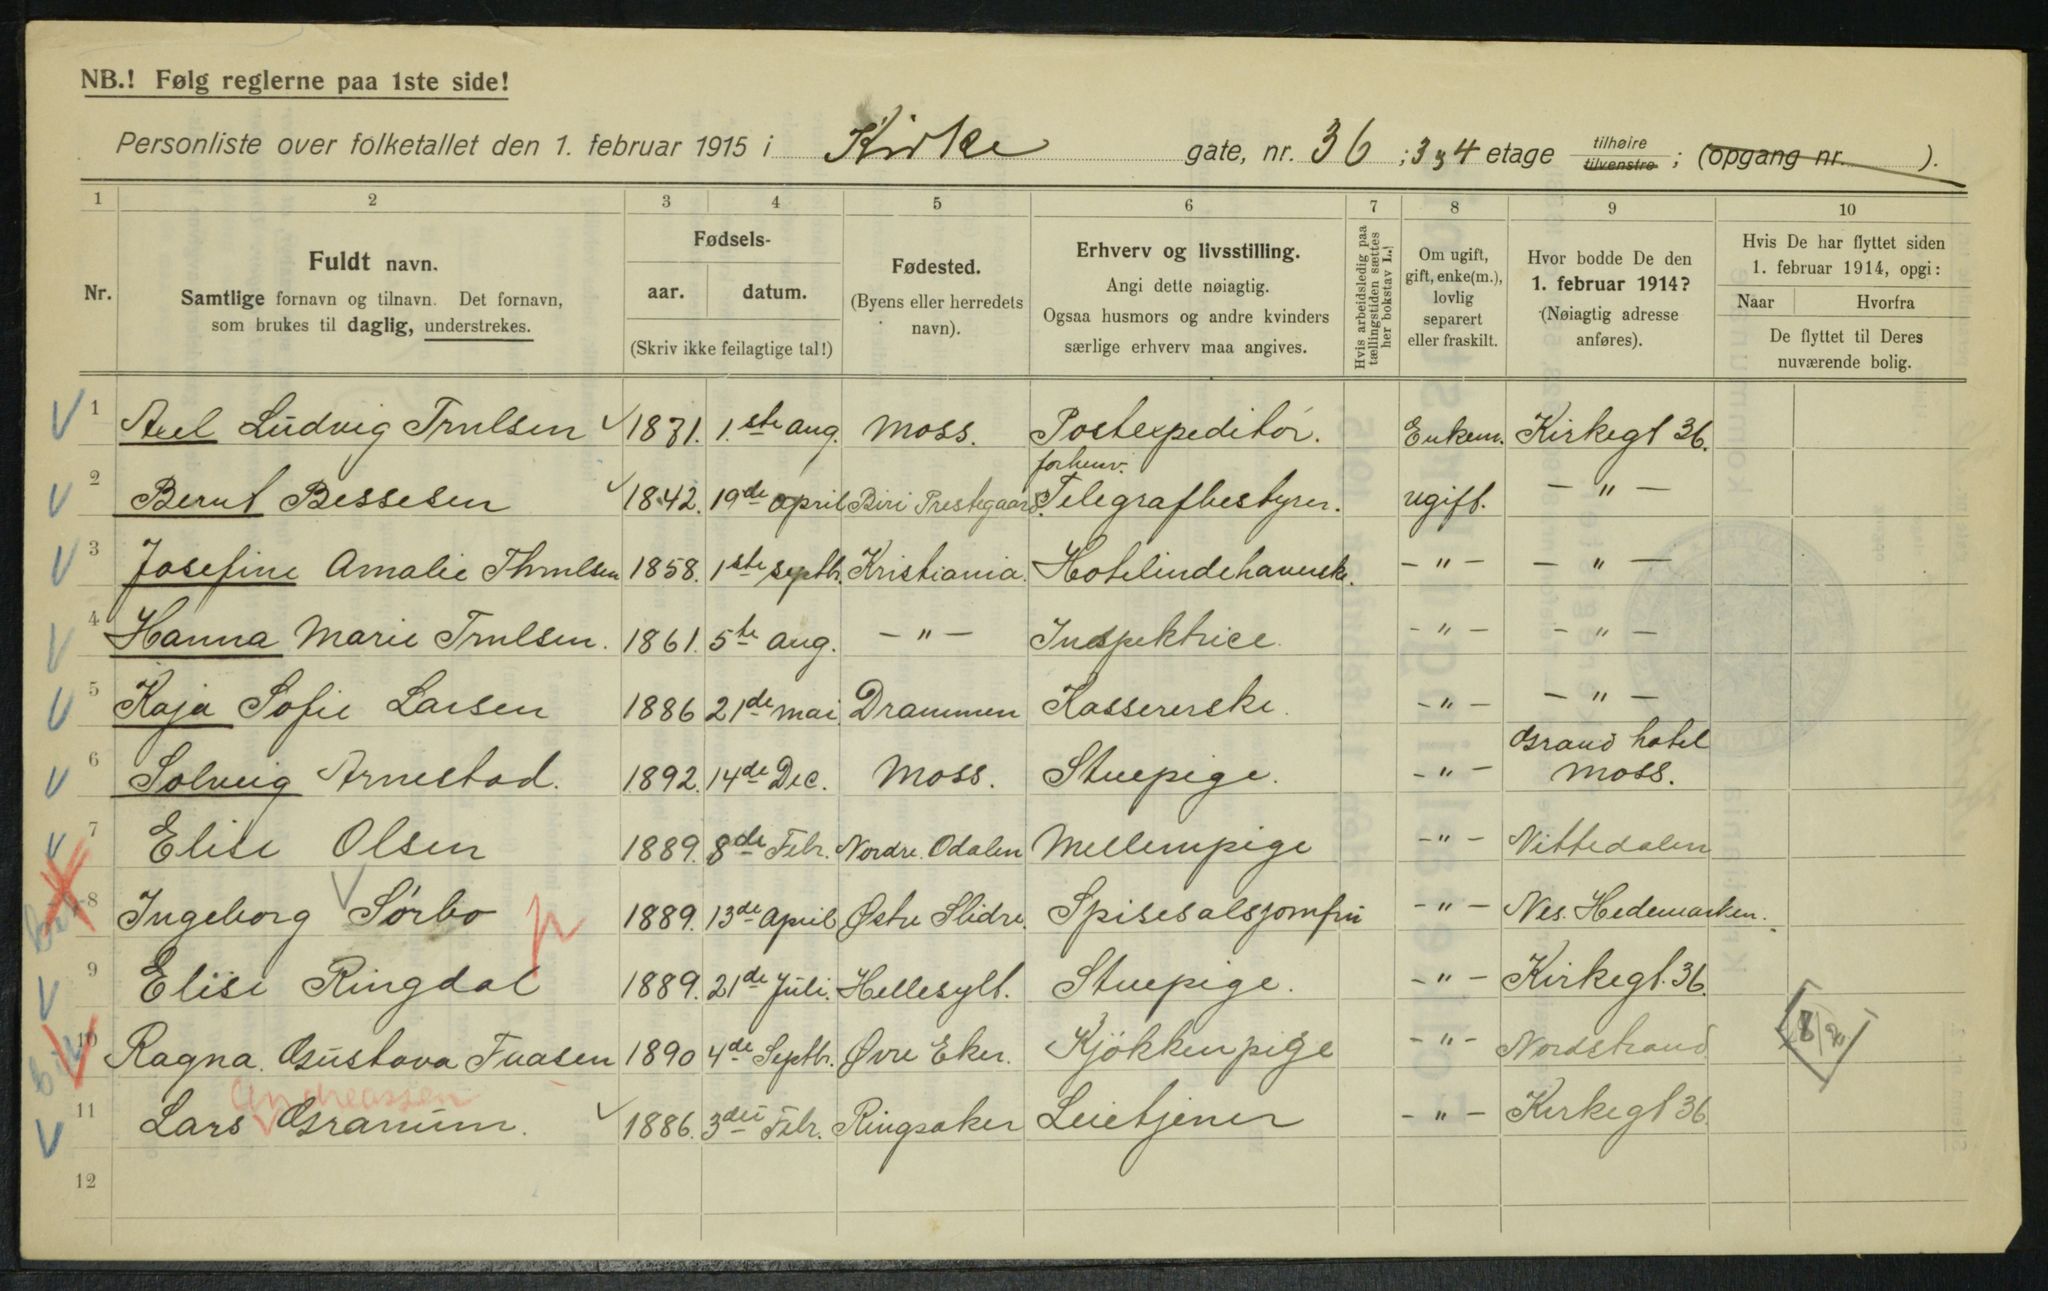 NB.! Følg reglerne paa 1ste side!
Personliste over folketallet den 1. februar 1915 i Kirke gate, nr. 36 ; 3 & 4 etage tilhøire tilvenstre ; (opgang nr. ).
1 2 3 4 5 6 7 8 9 10
Nr.
Fuldt navn.
Samtlige fornavn og tilnavn. Det fornavn,
som brukes til daglig, understrekes.
Fødsels-
aar. datum.
(Skriv ikke feilagtige tal!)
Fødested.
(Byens eller herredets
navn).
Erhverv og livsstilling.
Angi dette nøiagtig.
Ogsaa husmors og andre kvinders
særlige erhverv maa angives.
Hvis arbeidsledig paa
tællingstiden sættes
her bokstav L.!
Om ugift,
gift, enke(m.),
lovlig
separert
eller fraskilt.
Hvor bodde De den
1. februar 1914?
(Nøiagtig adresse
anføres).
Hvis De har flyttet siden
1. februar 1914, opgi:
Naar Hvorfra
De flyttet til Deres
nuværende bolig.
1 Axel Ludvig Trulsen 1871. 1.ste aug. Moss. Postexpeditør. Enkem. Kirkegt 36.
forhenv.
2 Bernt Bessesen 1842. 19de april Biri Prestegaard. Telegrafbestyrer. ugift. — " —
3 Josefine Amalie Thrulsen 1858. 1ste septbr. Kristiania. Hotelindehaverske. — " — — " —
4 Hanna Marie Trulsen. 1861. 5te aug. — " — Inspektrice. — " — — " —
5 Kaja Sofie Larsen 1886 21de mai Drammen Kassererske. — " — — " —
Grand hotel
6 Solveig Arnestad. 1892. 14de Dec. Moss. Stuepige. — " — Moss.
7 Elise Olsen 1889. 8de Febr. Nordre Odalen Mellempige — " — Nittedalen
8 Ingeborg Sørbo 1889. 13de april Østre Slidre. Spisesalsjomfru — " — Nes. Hedemarken.
9 Elise Ringdal 1889. 21de Juli. Hellesylt. Stuepige. — " — Kirkegt. 36.
10 Ragna Gustava Tuasen 1890 4de Septbr. Øvre Eker. Kjøkkenpige — " — Nordstrand
Andreassen
11 Lars Granum. 1886. 3die Febr. Ringsaker Leietjener — " — Kirkegt 36.
12